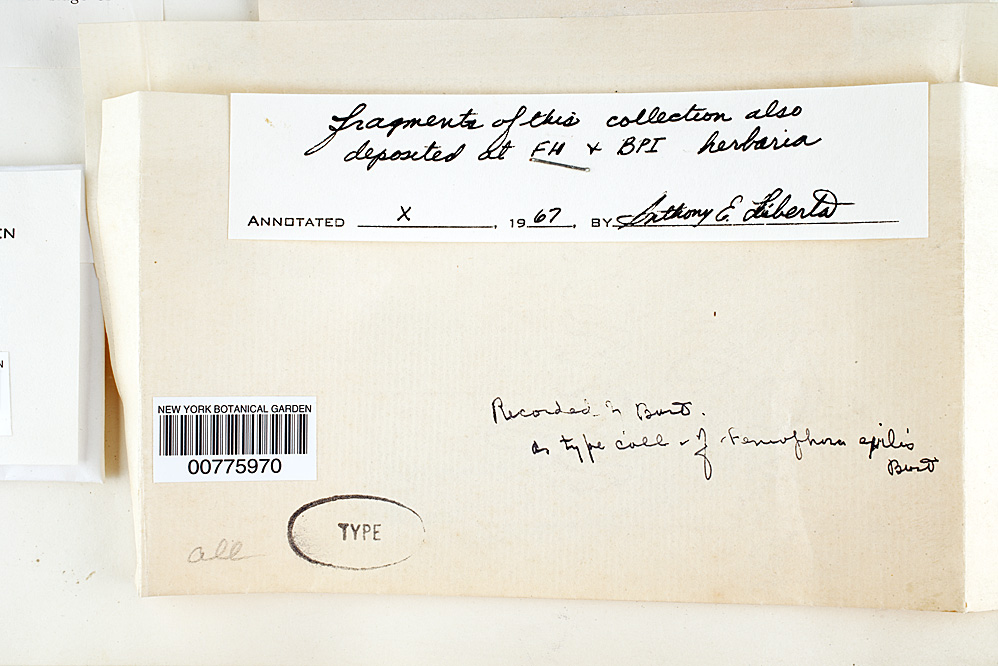 fragments of this collection also
deposited at FH & BPI herbaria
ANNOTATED X, 1967, BY Anthony E. Liberta
EN
N
NEW YORK BOTANICAL GARDEN
00775970
Recorded in Burt.
as type coll of Peniophora exilis
Burt
TYPE
all